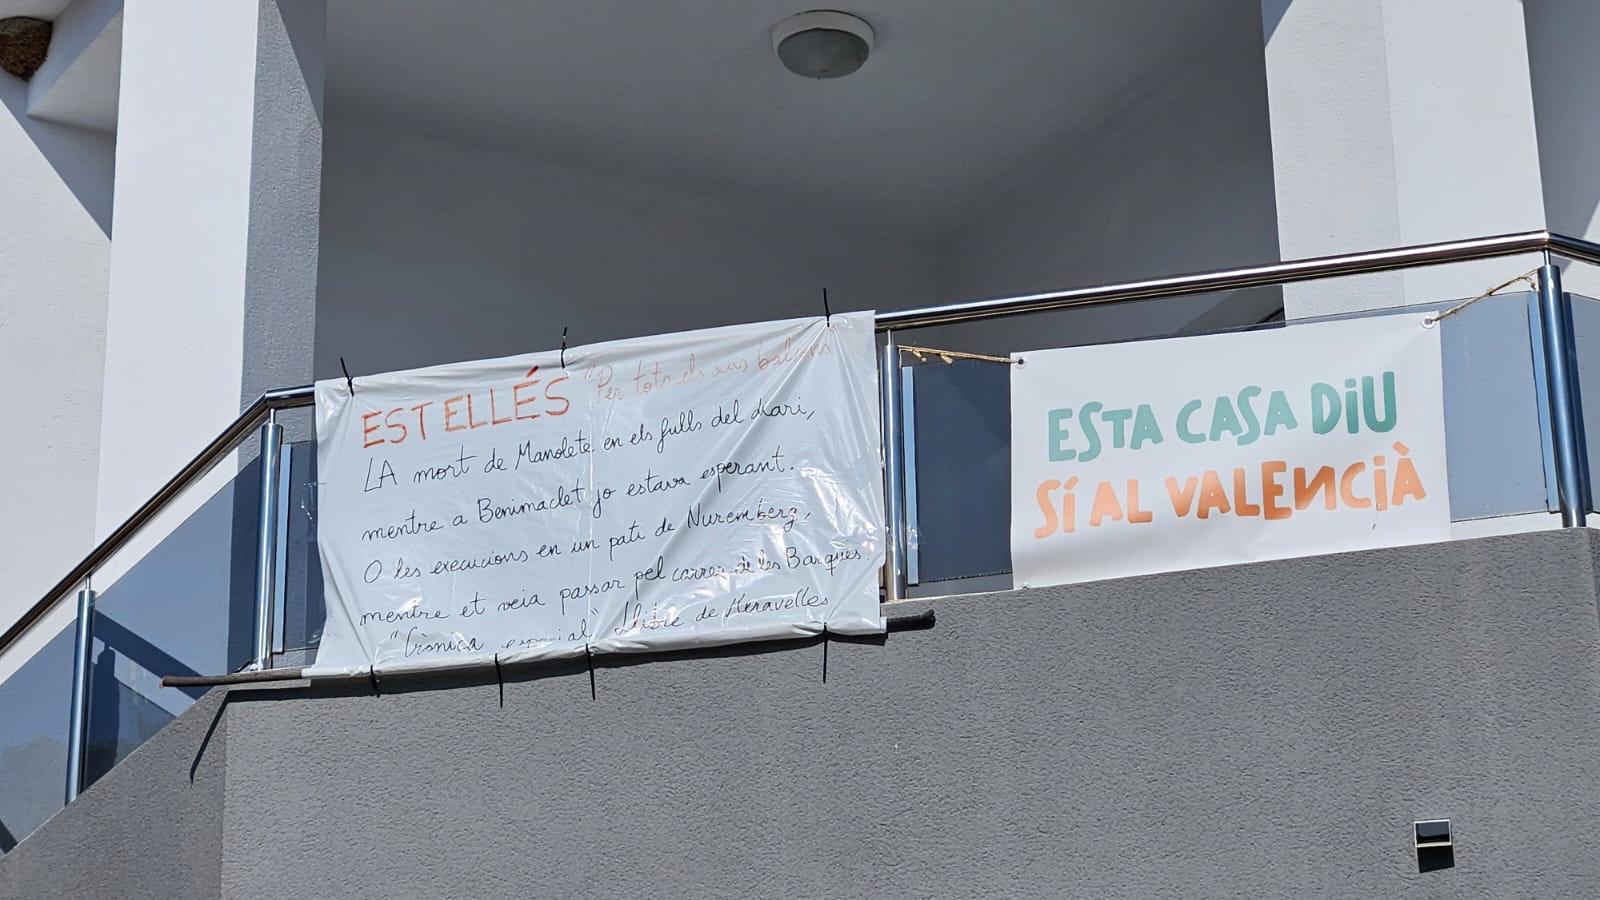 ESTELLÉS "Per tots els seus balcons
LA mort de Manolete en els fulls del diari,
mentre a Benimaclet jo estava esperant.
O les execucions en un pati de Nuremberg,
mentre et veia passar pel carrer de les Barques.
"Crònica especial" Llibre de Meravelles
ESTA CASA DiU
SÍ AL VALENCIÀ